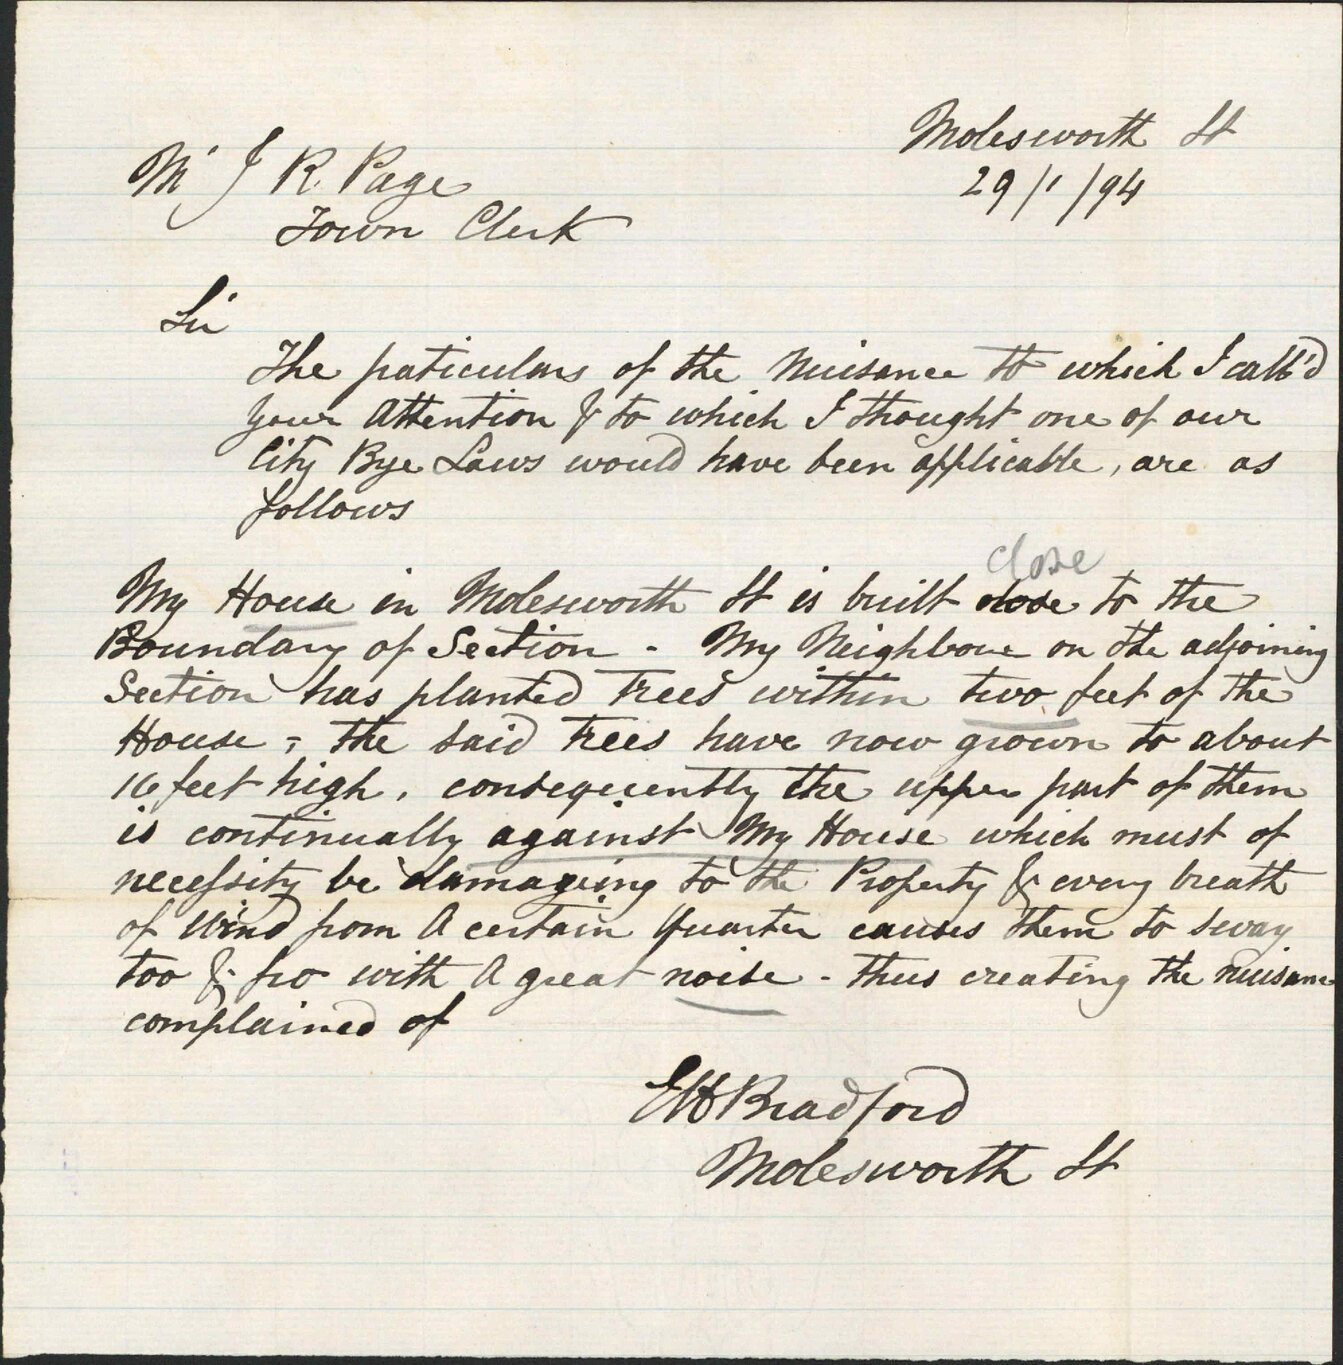 Molesworth St
29/1/94
Mr J R. Page
Town Clerk
Sir
The paticulars of the Nuisance to which I call'd
your Attention & to which I thought one of our
City Bye Laws would have been applicable, are as
follows
close
My House in Molesworth St is built close to the
Boundary of Section - My Neighbour on the adjoining
Section has planted Trees within two feet of the
House - the said Trees have now grown to about
16 feet high, consequently the upper part of them
is continually against My House which must of
necessity be damageing to the Property & every breath
of Wind from A certain Quarter causes them to sway
too & fro with A great noise - thus creating the nuisance
complained of
EH Bradford
Molesworth St